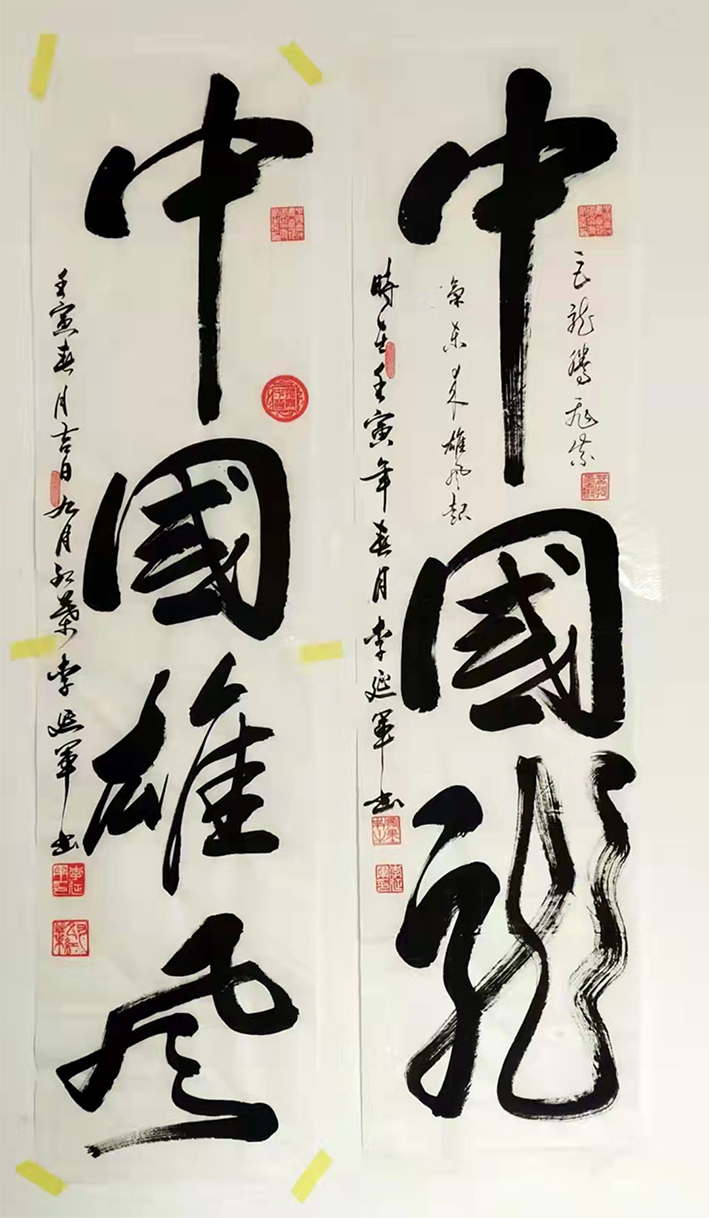 中國龍
巨龍騰飛紫
氣東來雄風起
時在壬寅年春月李延軍書
中國雄風
壬寅春月吉日九月紅葉李延軍書